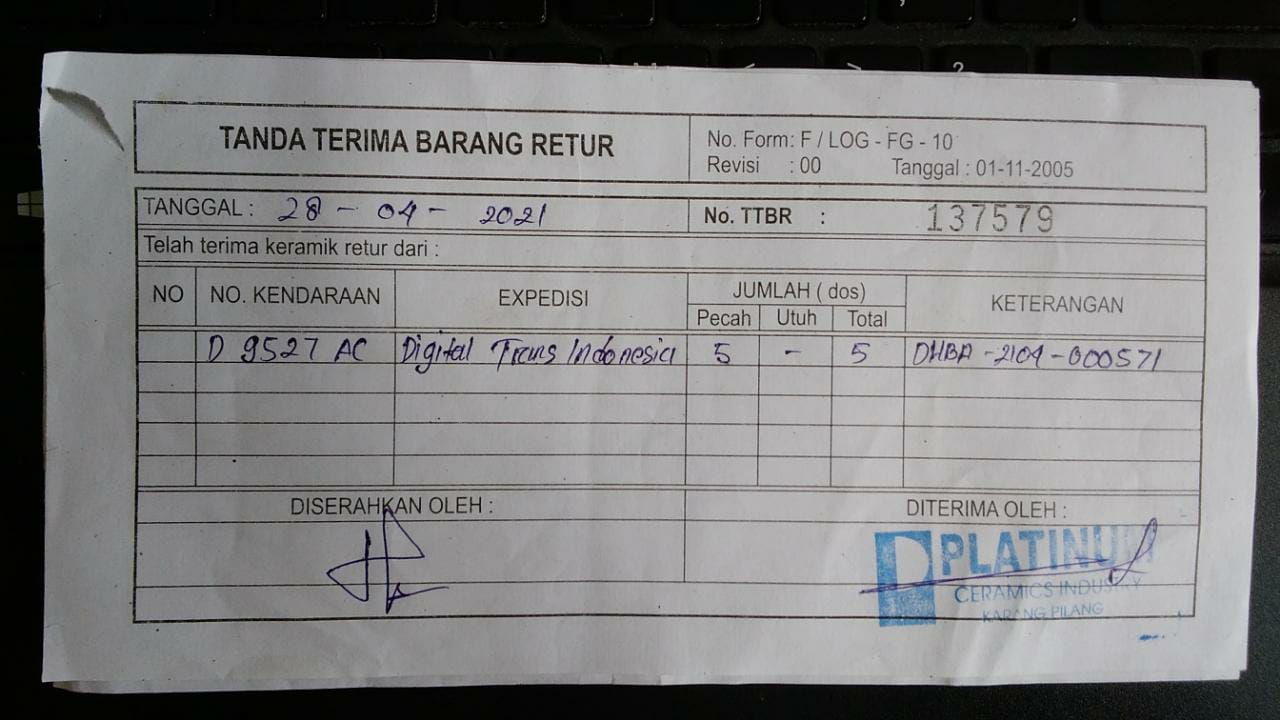 TANDA TERIMA BARANG RETUR
No. Form: F / LOG - FG - 10
Revisi : 00 Tanggal : 01-11-2005
TANGGAL : 28 - 04 - 2021
No. TTBR : 137579
Telah terima keramik retur dari :
NO NO. KENDARAAN EXPEDISI JUMLAH ( dos) KETERANGAN
Pecah Utuh Total
D 9527 AC Digital Trans Indonesia 5 - 5 DHBA -2104-000571
DISERAHKAN OLEH : DITERIMA OLEH :
PLATINUM
CERAMICS INDUSTRY
KARANG PILANG